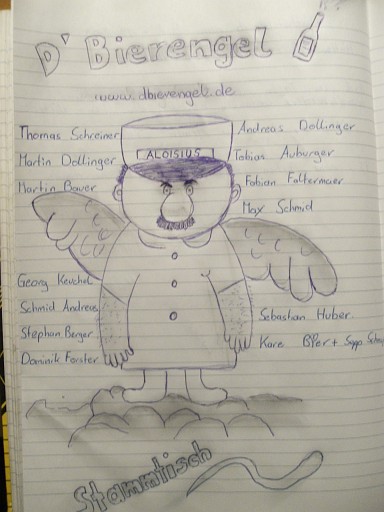 D' Bierengel
www.dbierengel.de
Thomas Schreiner
Andreas Dollinger
Martin Dollinger
ALOISIUS
Tobias Auburger
Martin Bauer
Fabian Faltermaier
Max Schmid
Georg Keuchel
Schmid Andreas
Sebastian Huber
Stephan Berger
Dominik Forster
Kare
+ Sepp
Stammtisch